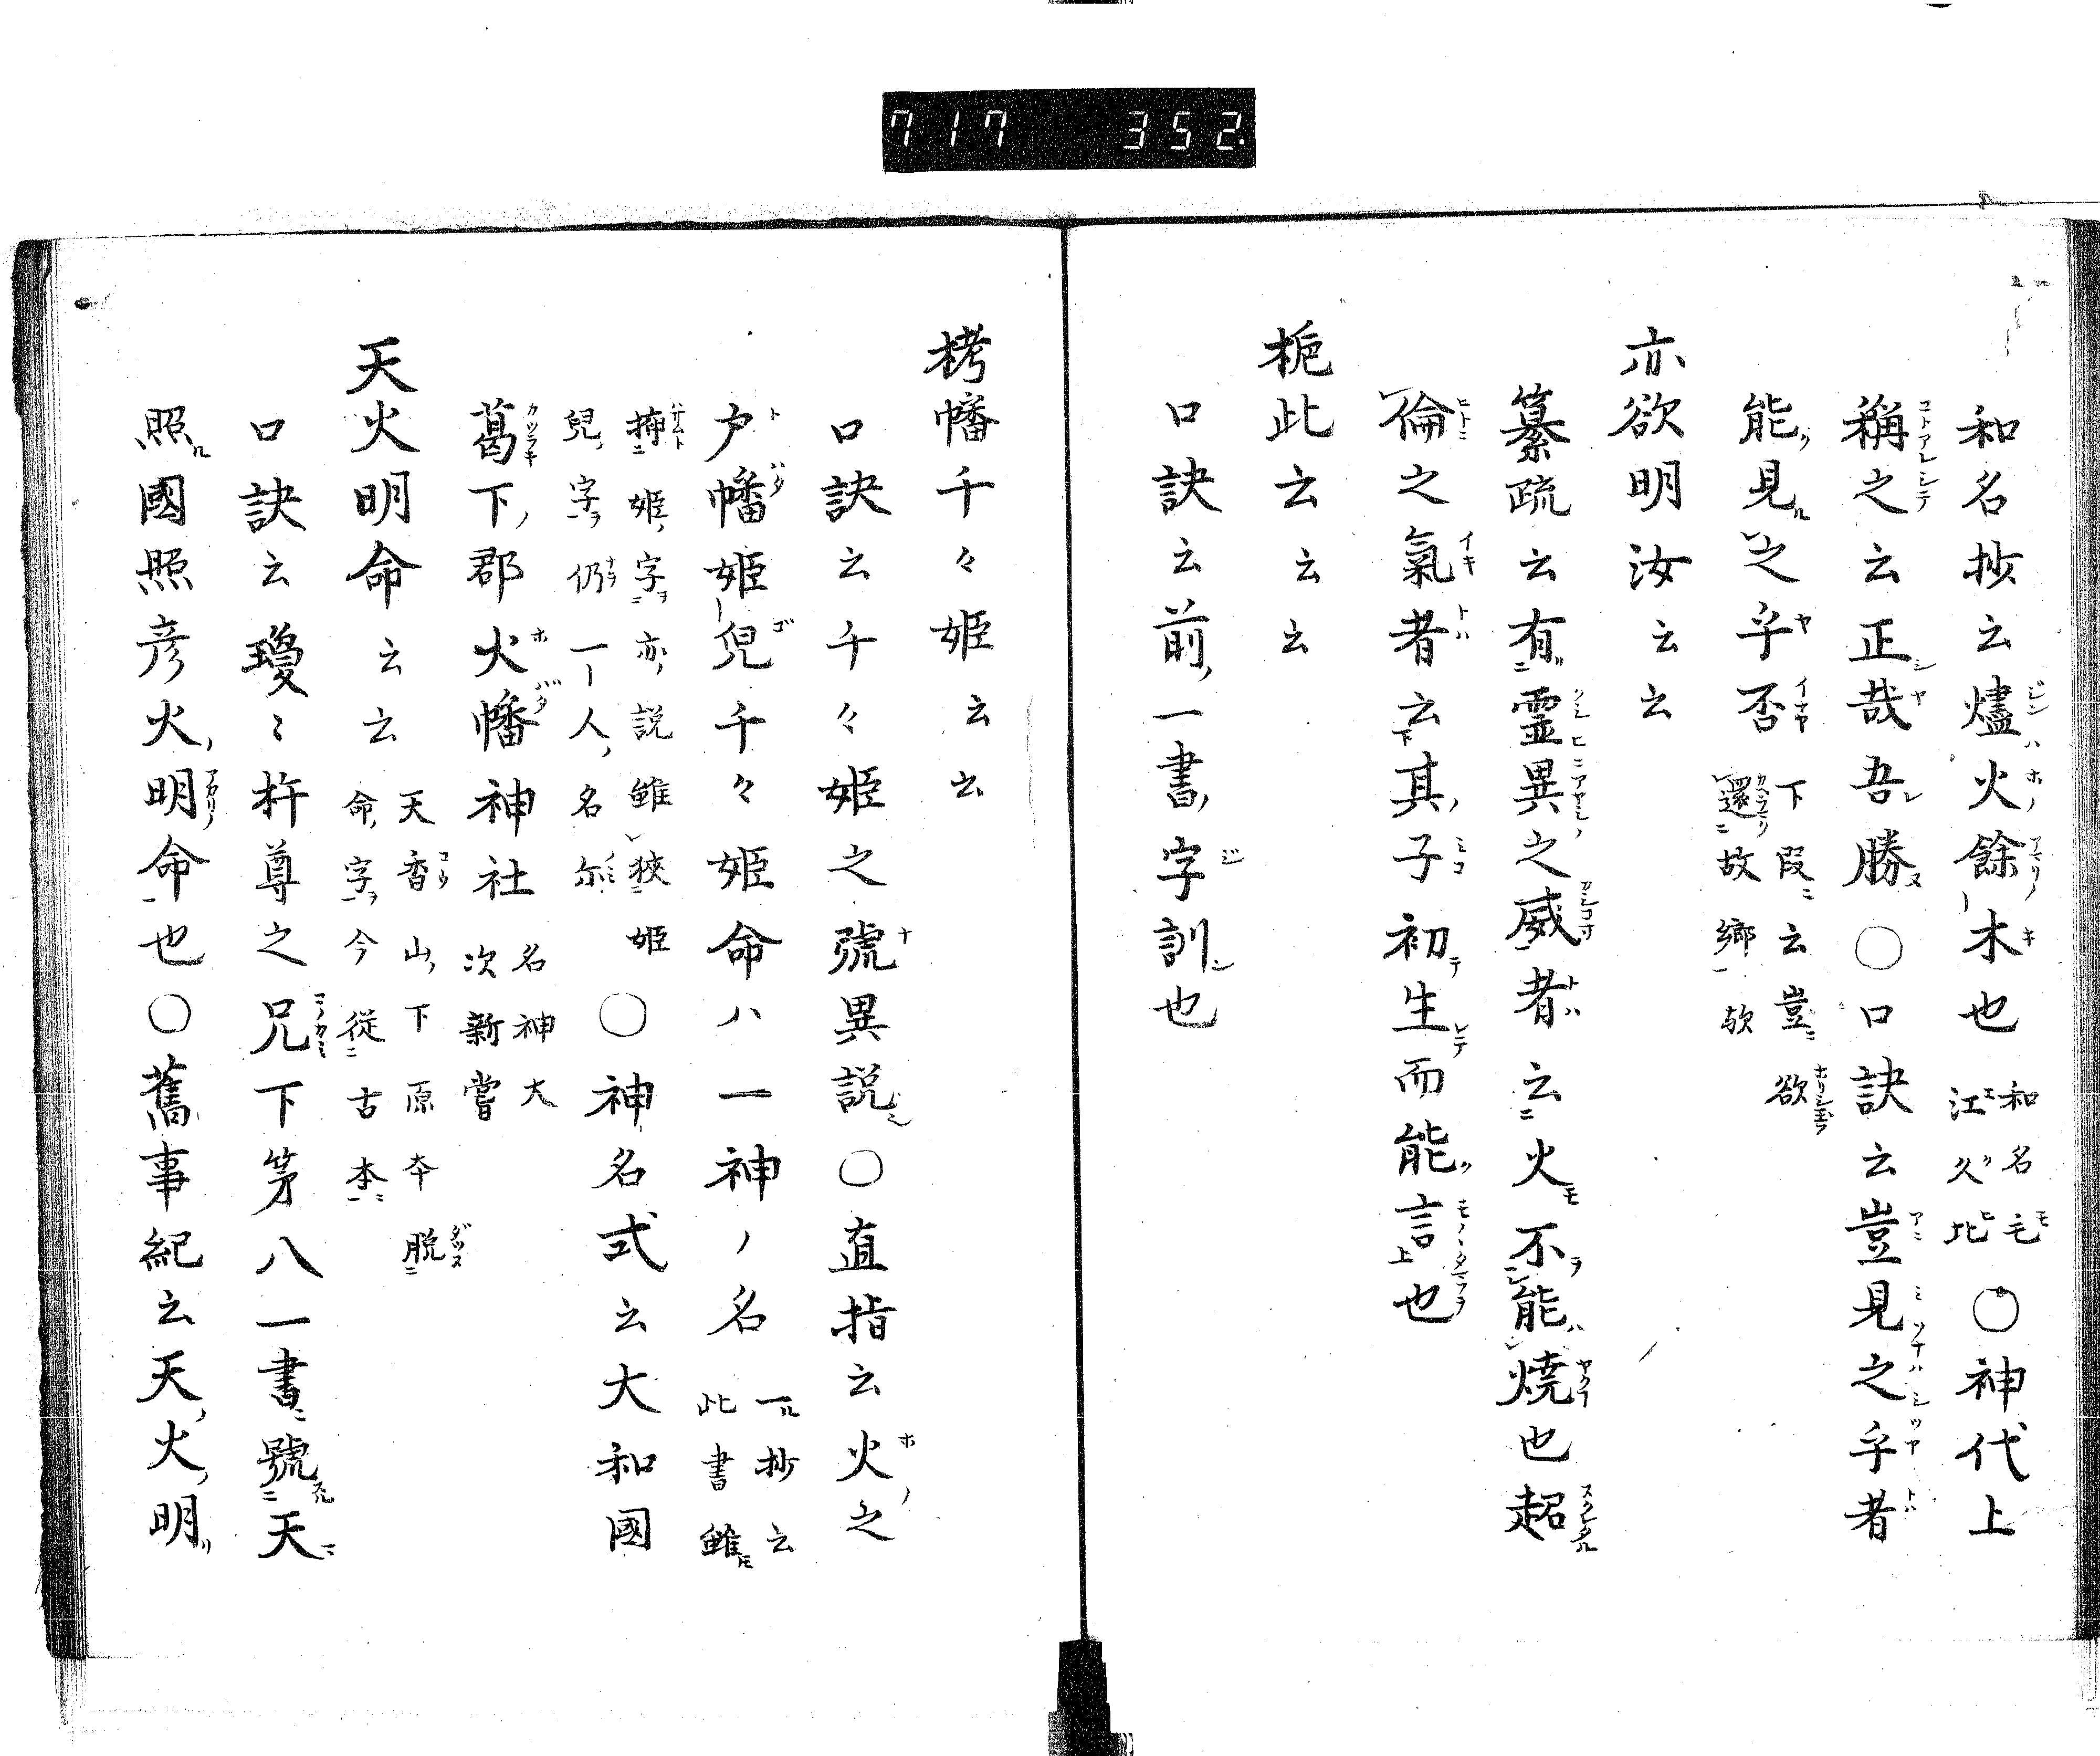 717 352.
和名抄云燼火餘木也 和名毛江久比 〇神代上
稱之云正哉吾勝〇口訣云豈見之乎者
能見之乎否 下叚云豈欲還故郷欤
亦欲明汝云云
纂疏云有霊異之威者云火不能焼也超
倫之氣者云其子初生而能言也
梔此云云云
口訣云前一書字訓也
栲幡千々姫云云
口訣云千々姫之號異説〇直指云火之
戸幡姫児千々姫命ハ一神ノ名 一抄云此書雖
挿姫字亦説雖狹姫兒字仍一人名尓 〇神名式云大和國
葛下郡火幡神社 名神大次新嘗
天火明命云云 天香山下原本脱命字今從古本
口訣云瓊〻杵尊之兄下第八一書號天
照國照彦火明命也〇舊事紀云天火明